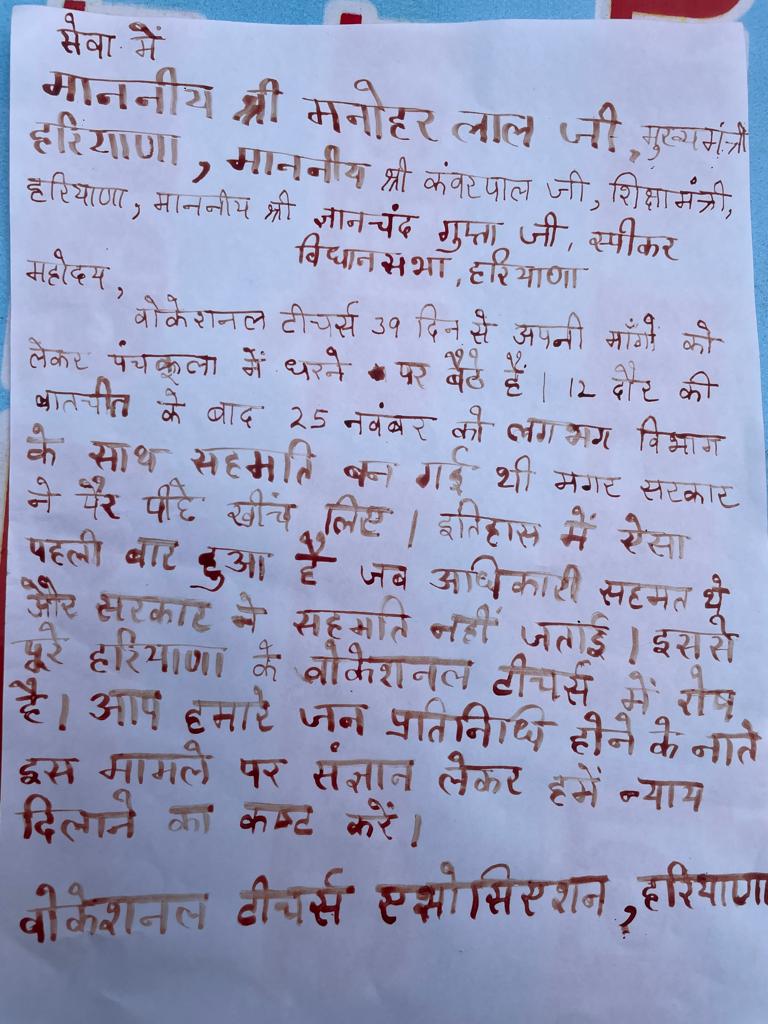 सेवा में
माननीय श्री मनोहर लाल जी, मुख्यमंत्री
हरियाणा, माननीय श्री कंवरपाल जी, शिक्षामंत्री,
हरियाणा, माननीय श्री ज्ञानचंद गुप्ता जी, स्पीकर
विधानसभा, हरियाणा
महोदय,
वोकेशनल टीचर्स 39 दिन से अपनी माँगों को
लेकर पंचकूला में धरने पर बैठे हैं। 12 दौर की
बातचीत के बाद 25 नवंबर को लगभग विभाग
के साथ सहमति बन गई थी मगर सरकार
ने पैर पीछे खींच लिए। इतिहास में ऐसा
पहली बार हुआ है जब अधिकारी सहमत थे
और सरकार ने सहमति नहीं जताई। इससे
पूरे हरियाणा के वोकेशनल टीचर्स में रोष
है। आप हमारे जन प्रतिनिधि होने के नाते
इस मामले पर संज्ञान लेकर हमें न्याय
दिलाने का कष्ट करें।
वोकेशनल टीचर्स एसोसिएशन, हरियाणा